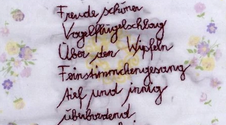 Freude schöner
Vogelflügelschlag
Über den Wipfeln
Feinstimmchengesang
tief und innig
überbordend